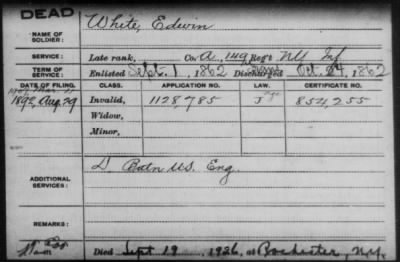 DEAD
NAME OF SOLDIER: White, Edwin
SERVICE: Late rank, Co. A, 149 Reg't NY Inf.
TERM OF SERVICE: Enlisted Sept. 1, 1862 Discharged Oct. 1862
DATE OF FILING. CLASS. APPLICATION NO. LAW. CERTIFICATE NO.
1892, Aug. 29 Invalid, 1128,785 J 854,255
Widow,
Minor,
ADDITIONAL SERVICES: D Batn U.S. Eng.
REMARKS:
Died Sept 19, 1926, at Rochester, N.Y.